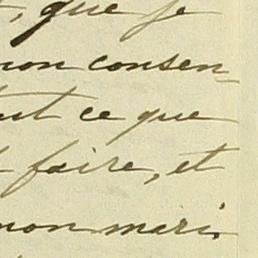 , que je
mon consen-
out ce que
faire, et
mon mari,